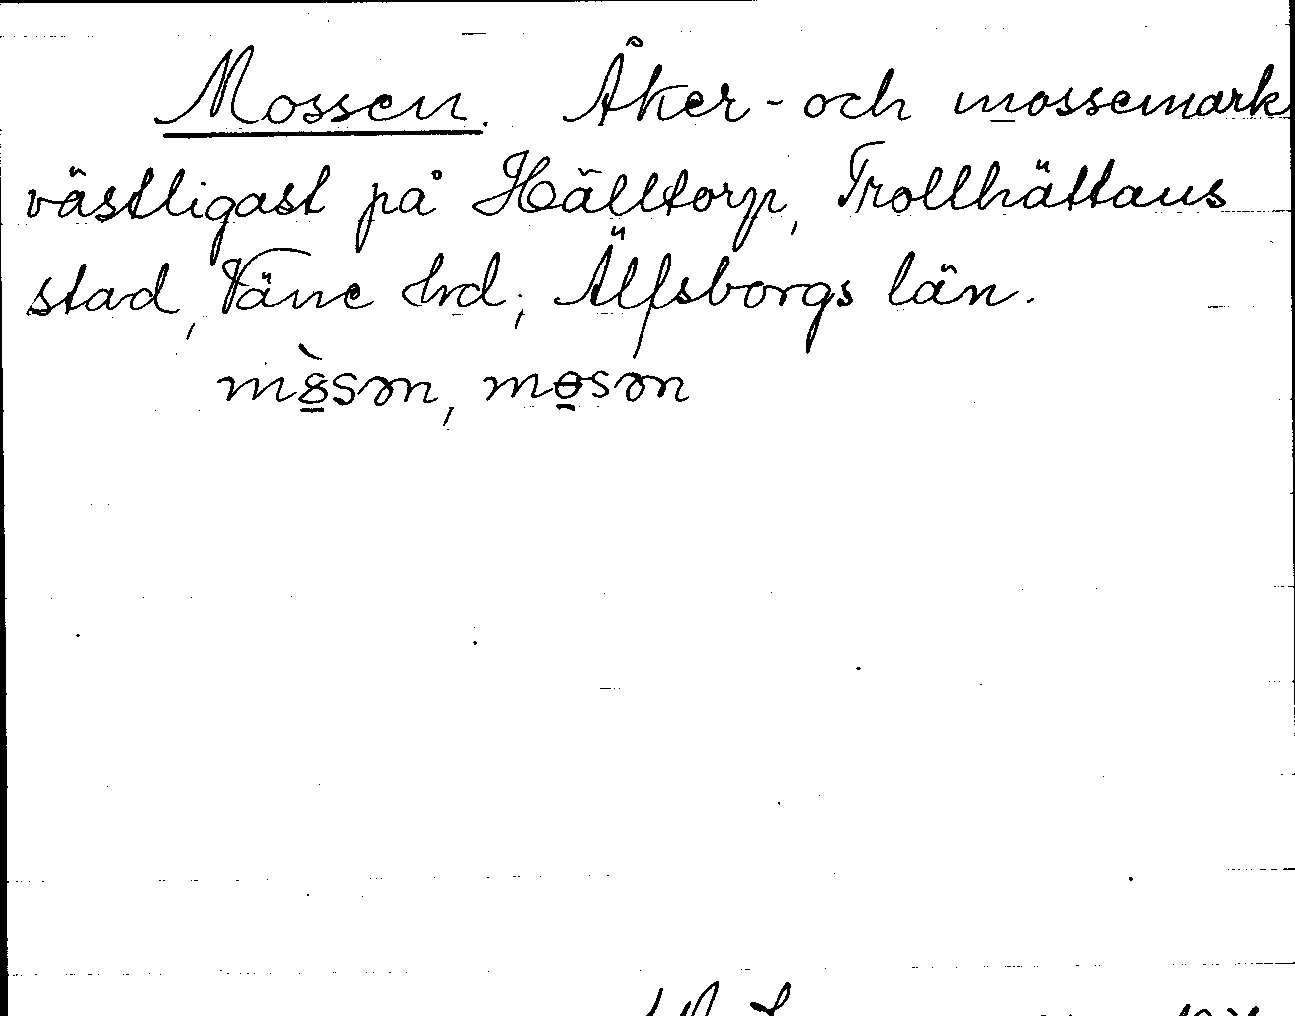 Mossen. Åker- och mossemark
västligast på Hälltorp, Trollhättans
stad, Väne hd, Älfsborgs län.